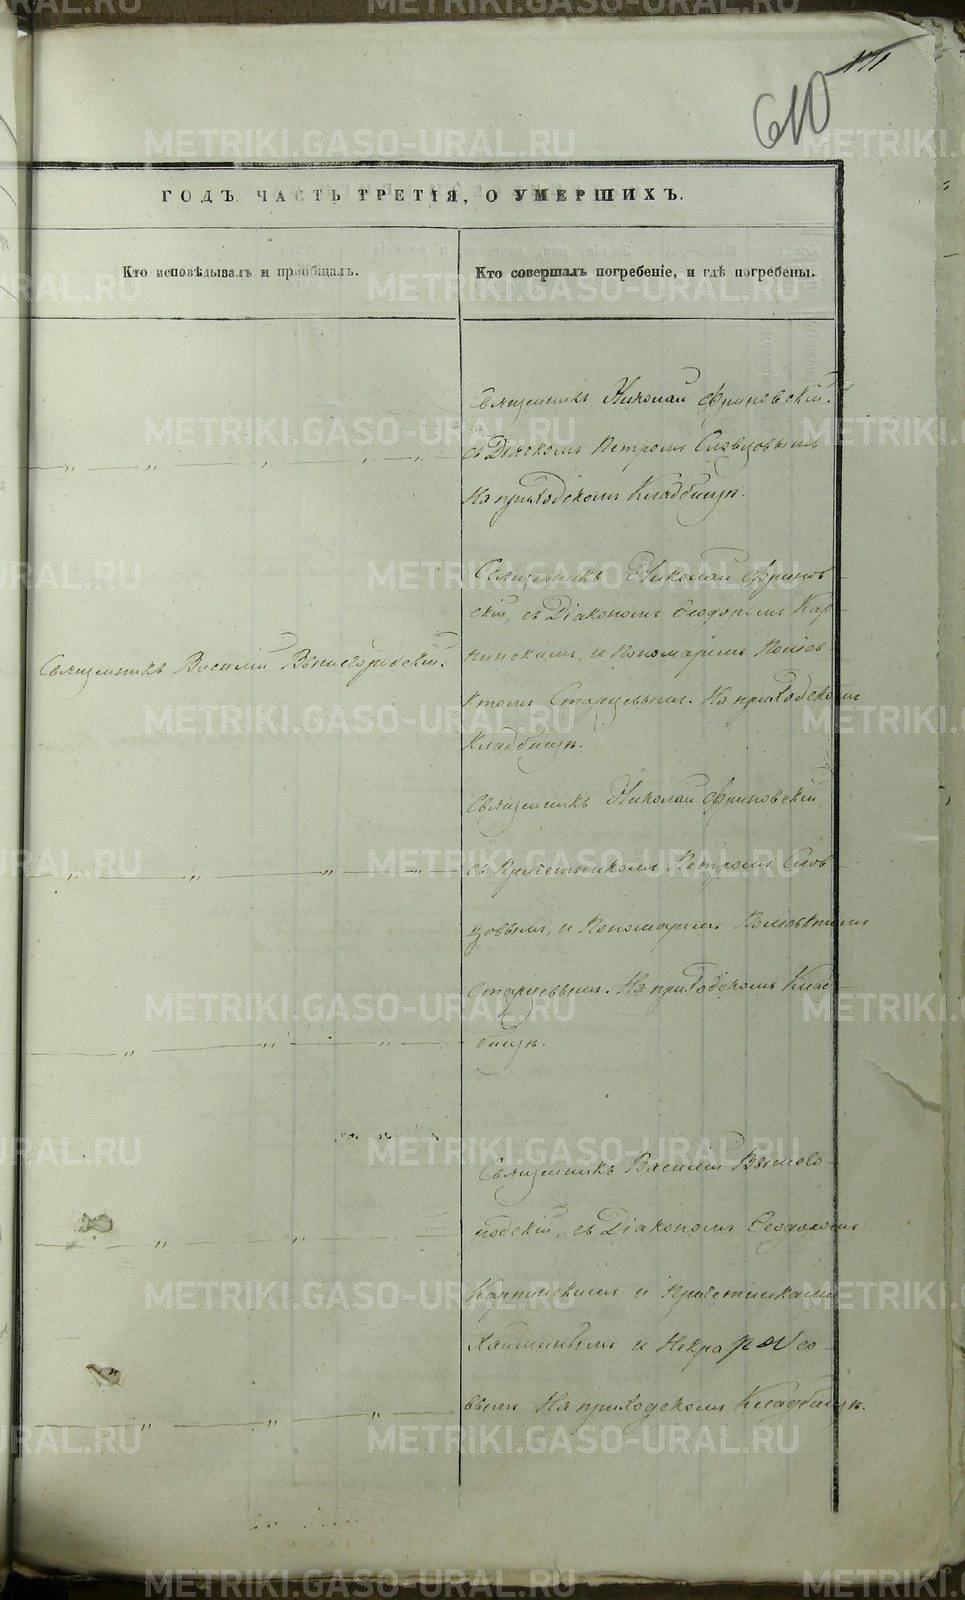 610
ГОДЪ ЧАСТЬ ТРЕТІЯ, О УМЕРШИХЪ.
Кто исповѣдывалъ и пріобщалъ.
Кто совершалъ погребеніе, и гдѣ погребены.
Священникъ Николай Фриновскій.
съ Дьячкомъ Петромъ Словцовымъ
На приходскомъ Кладбищѣ.
Священникъ Василій Вышегородскій.
Священникъ Николай Фринов-
скій, съ Діакономъ Феодоромъ Кар-
пинскимъ, и Пономаремъ Поліев-
ктомъ Старцевымъ. На приходскомъ
Кладбищѣ.
Священникъ Николай Фриновскій
съ Причетникомъ Петромъ Слов-
цовымъ, и Пономаремъ Поліевктомъ
Старцевымъ. На приходскомъ Клад-
бищѣ.
Священникъ Василій Вышего-
родскій, съ Діакономъ Феодоромъ
Карпинскимъ и Причетниками
и Некрасо-
вымъ На приходскомъ Кладбищѣ.
METRIKI.GASO-URAL.RU